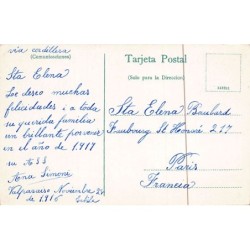 via cordillera
Tarjeta Postal
(Comunicaciones)
(Solo para la Dirección)
Sta Elena
Les deseo muchas
felicidades a toda
su querida familia
un brillante porvenir
en el año de 1917
su ASS
Ana Simone
Valparaiso Noviembre 24
de 1916
Sta Elena
Faubourg St Honoré 217
Paris
Francia